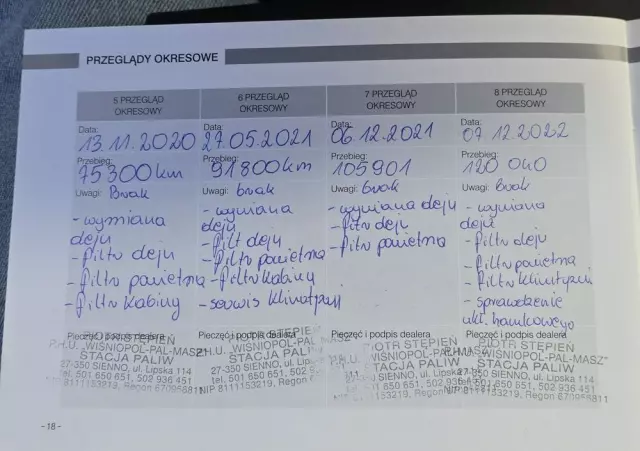 PRZEGLĄDY OKRESOWE
5 PRZEGLĄD
OKRESOWY
Data:
13.11.2020
Przebieg:
75300km
Uwagi: Brak
- wymiana
oleju
- filtr oleju
- filtr powietrza
- filtr kabiny
Pieczęć i podpis dealera
PIOTR STĘPIEŃ
P.H.U. „WIŚNIOPOL-PAL-MASZ"
STACJA PALIW
27-350 SIENNO, ul. Lipska 114
tel. 501 650 651, 502 936 451
NIP 8111153219, Regon 670956811
6 PRZEGLĄD
OKRESOWY
Data:
27.05.2021
Przebieg:
91800km
Uwagi: brak
- wymiana
oleju
- filtr oleju
- filtr powietrza
- filtr kabiny
- serwis klimatyzacji
Pieczęć i podpis dealera
PIOTR STĘPIEŃ
P.H.U. „WIŚNIOPOL-PAL-MASZ"
STACJA PALIW
27-350 SIENNO, ul. Lipska 114
tel. 501 650 651, 502 936 451
NIP 8111153219, Regon
7 PRZEGLĄD
OKRESOWY
Data:
06.12.2021
Przebieg:
105901
Uwagi: brak
- wymiana oleju
- filtr oleju
- filtr powietrza
Pieczęć i podpis dealera
PIOTR STĘPIEŃ
„WIŚNIOPOL-PAL-MASZ"
STACJA PALIW
27-350 SIENNO, ul. Lipska
tel. 501 650 651, 502 936
NIP 8111153219, Regon
8 PRZEGLĄD
OKRESOWY
Data:
07.12.2022
Przebieg:
120 040
Uwagi: brak
- wymiana
oleju
- filtr oleju
- filtr powietrza
- filtr klimatyzacji
- sprawdzenie
ukł. hamkowego
Pieczęć i podpis dealera
PIOTR STĘPIEŃ
„WIŚNIOPOL-PAL-MASZ"
STACJA PALIW
27-350 SIENNO, ul. Lipska 114
651, 502 936 451
Regon 670956811
- 18 -